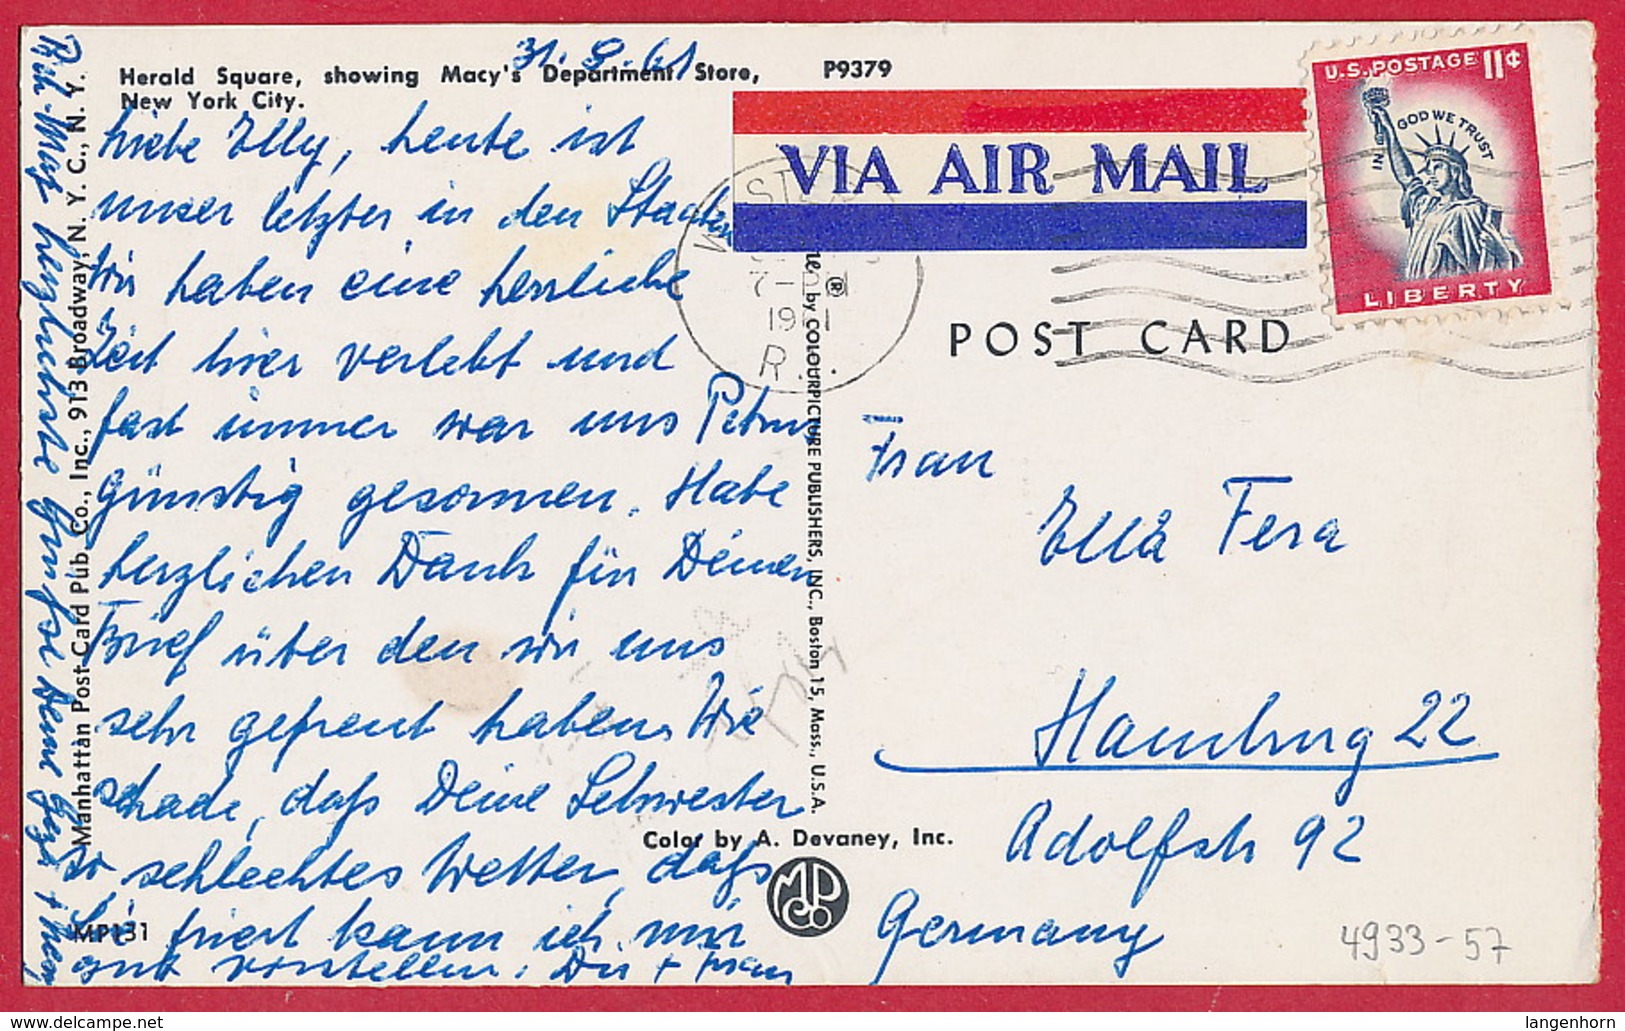 31. 8. 61
Herald Square, showing Macy's Department Store,
New York City.
P9379
Liebe Elly, heute ist
unser letzter in den Staaten
Wir haben eine herrliche
Zeit hier verlebt und
fast immer war uns Petrus
günstig gesonnen. Habe
herzlichen Dank für Deinen
Brief über den wir uns
sehr gefreut haben. Wie
schade, daß Deine Schwester
so schlechtes Wetter, daß
Sie friert kann ich mir
gut vorstellen. Dir + Frau
herzlichste Grüße Deine
Manhattan Post Card Pub Co., Inc., 913 Broadway, N. Y. C., N. Y.
MP131
by COLOURPICTURE PUBLISHERS, INC., Boston 15, Mass., U.S.A.
Color by A. Devaney, Inc.
MPCo
VIA AIR MAIL
U.S. POSTAGE 11¢
IN GOD WE TRUST
LIBERTY
R.
POST CARD
Frau
Ella Fera
Hamburg 22
Adolfstr 92
Germany
4933-57
https://www.delcampe.net
langenhorn